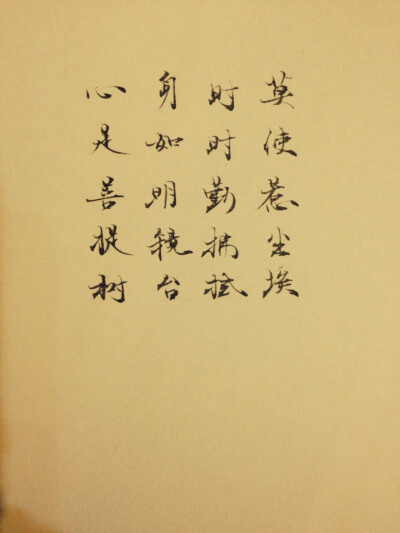 心是善提树
身如明镜台
时时勤拂拭
莫使惹尘埃